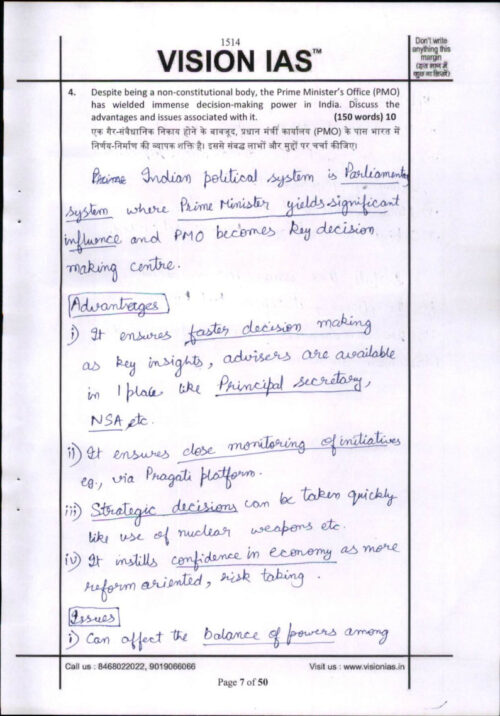 1514
VISION IAS™
Don't write
anything this
margin
(इस भाग में
कुछ ना लिखें)
4. Despite being a non-constitutional body, the Prime Minister's Office (PMO)
has wielded immense decision-making power in India. Discuss the
advantages and issues associated with it. (150 words) 10
एक गैर-संवैधानिक निकाय होने के बावजूद, प्रधान मंत्री कार्यालय (PMO) के पास भारत में
निर्णय-निर्माण की व्यापक शक्ति है। इससे संबद्ध लाभों और मुद्दों पर चर्चा कीजिए।
Prime Indian political system is Parliamentary
system where Prime Minister yields significant
influence and PMO becomes key decision
making centre.
Advantages
i) It ensures faster decision making
as key insights, advisers are available
in 1 place like Principal secretary,
NSA etc.
ii) It ensures close monitoring of initiatives
eg., via Pragati platform.
iii) Strategic decisions can be taken quickly
like use of nuclear weapons etc.
iv) It instills confidence in economy as more
reform oriented, risk taking.
Issues
i) Can affect the balance of powers among
Call us : 8468022022, 9019066066
Visit us : www.visionias.in
Page 7 of 50